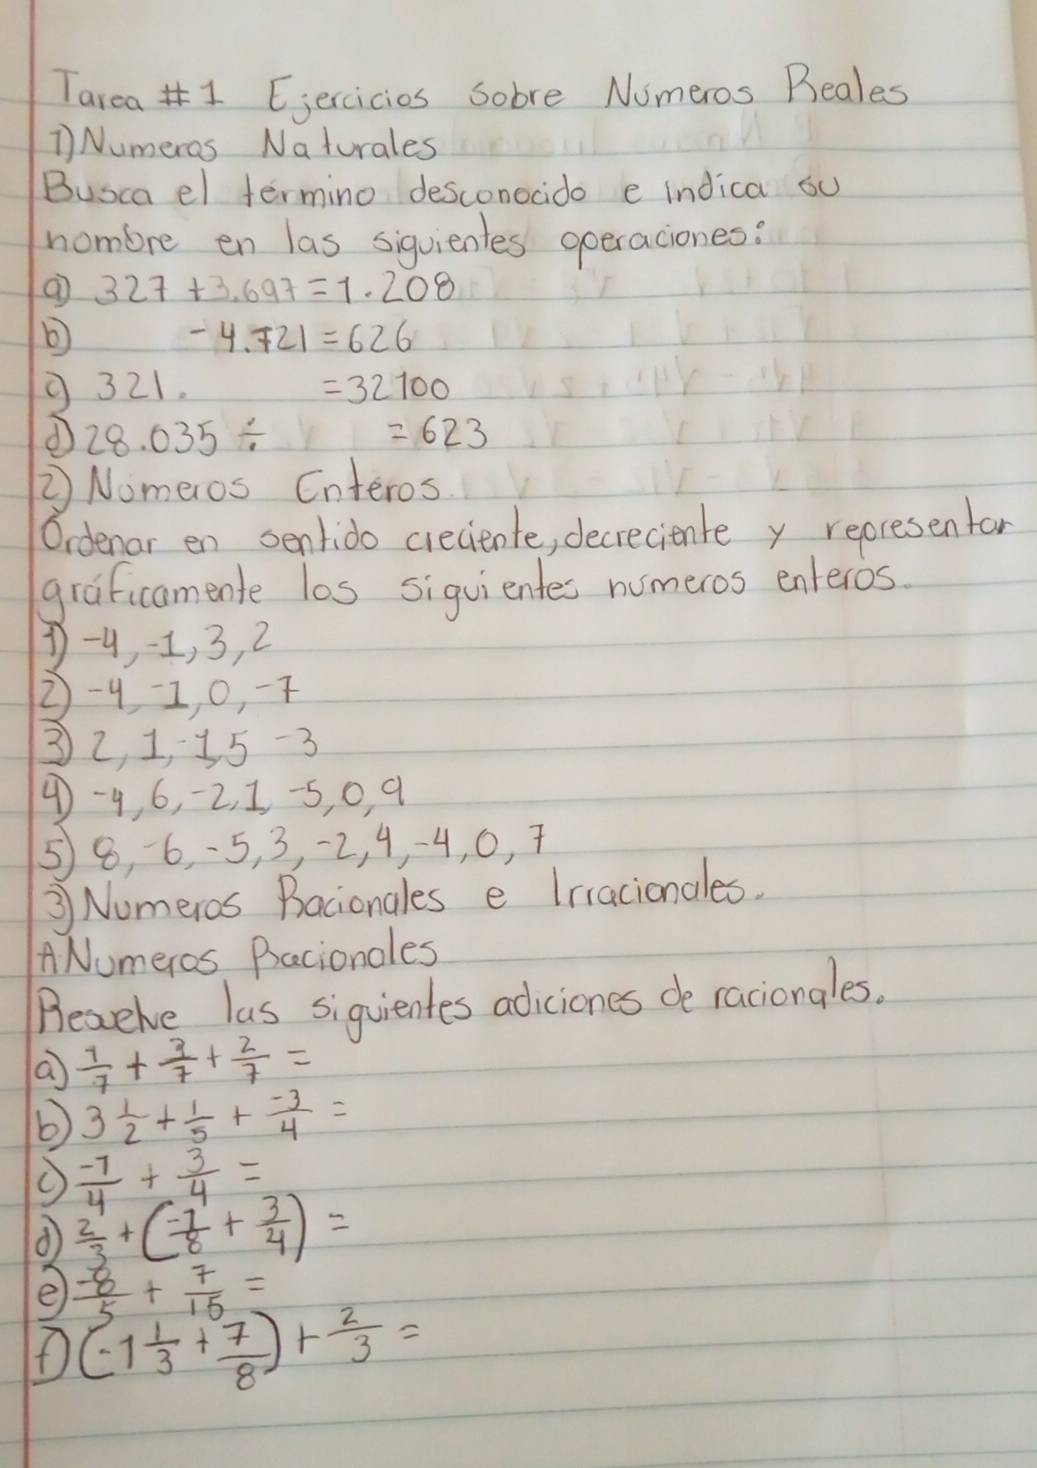 Tarea #1 Ejercicios sobre Números Reales
1) Numeros Naturales
Busca el término desconocido e indica su
nombre en las siguientes operaciones:
a) 327 + 3.697 = 1.208
b) - 4.721 = 626
c) 321. = 32100
d) 28.035 ÷ = 623
2) Números Enteros
Ordenar en sentido creciente, decreciente y representar
gráficamente los siguientes números enteros.
1) -4, -1, 3, 2
2) -4, -1, 0, -7
3) 2, 1, -1, 5 -3
4) -4, 6, -2, 1, -5, 0, 9
5) 8, -6, -5, 3, -2, 4, -4, 0, 7
3) Numeros Racionales e Irracionales.
A Numeros Racionales
Resuelve las siguientes adiciones de racionales.
a) 1/7 + 3/7 + 2/7 =
b) 3 1/2 + 1/5 + -3/4 =
c) -1/4 + 3/4 =
d) 2/3 + (-1/8 + 3/4) =
e) -8/5 + 7/15 =
f) (-1 1/3 + 7/8) + 2/3 =